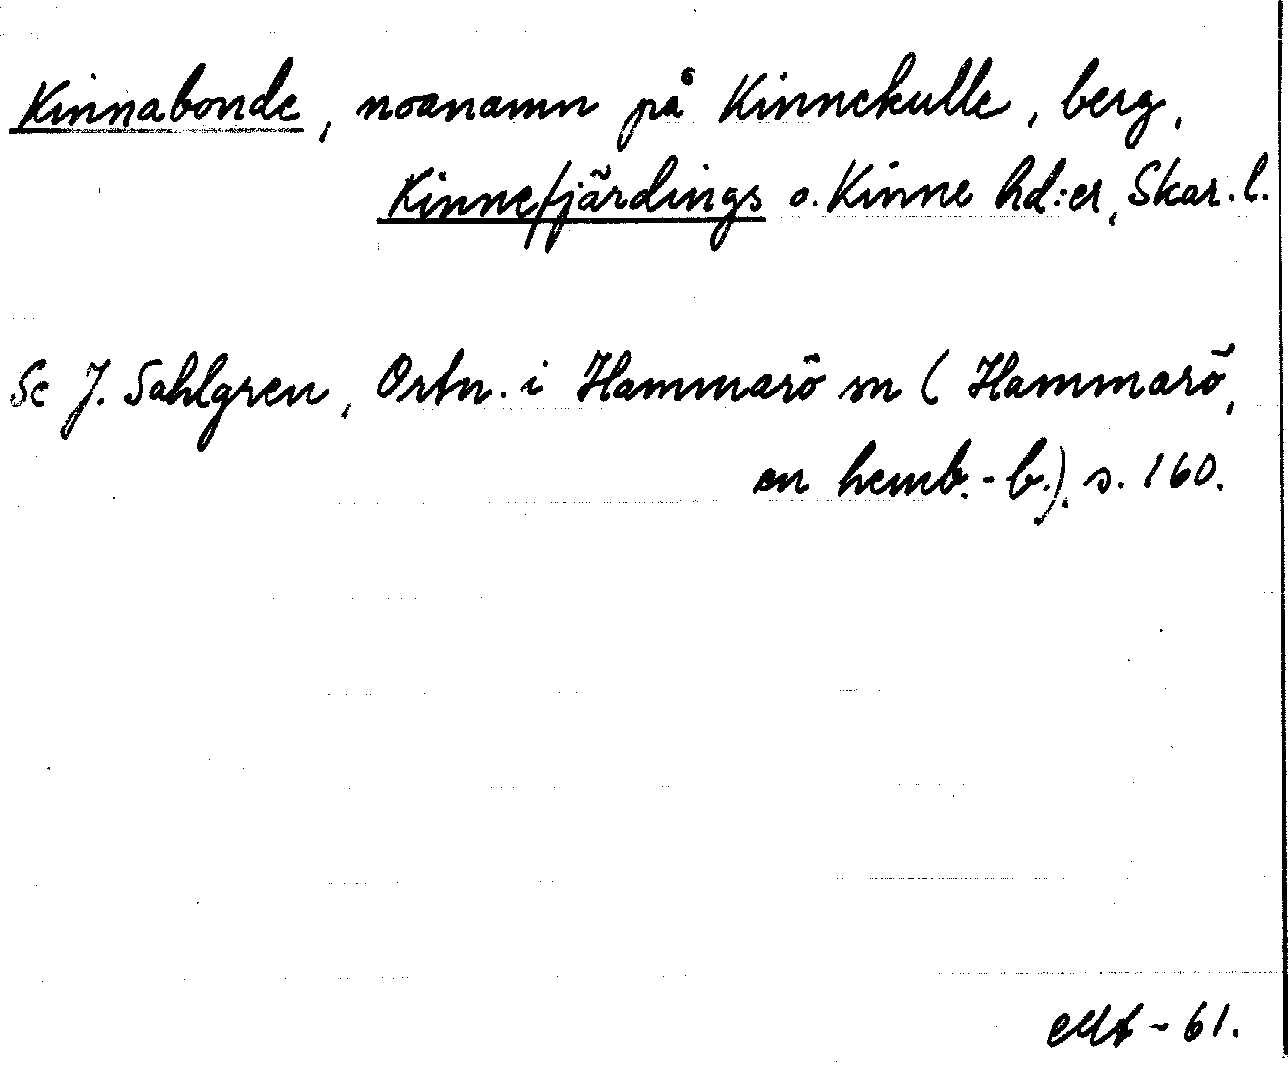 Kinnabonde, noanamn på Kinnekulle, berg,
Kinnefjärdings o. Kinne hd:er, Skar. l.
Se J. Sahlgren, Ortn. i Hammarö sn (Hammarö,
en hemb.-b.), s. 160.
-61.